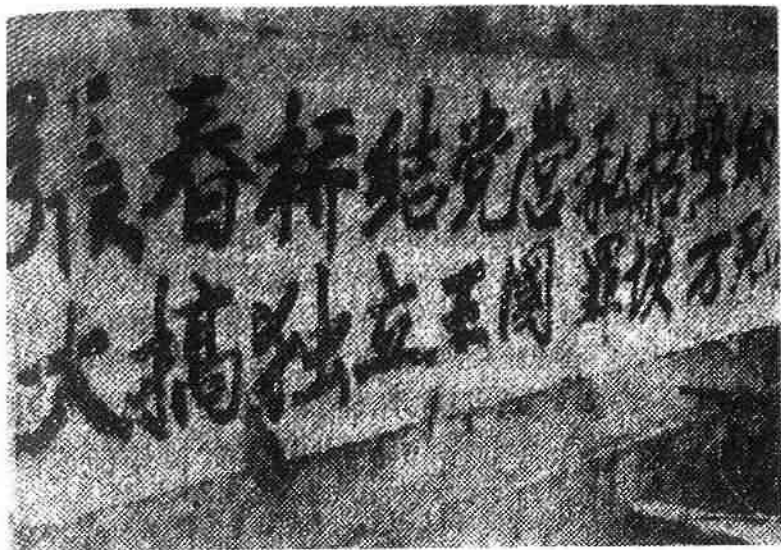 张春桥结党营私搞
大搞独立王国罪该万死